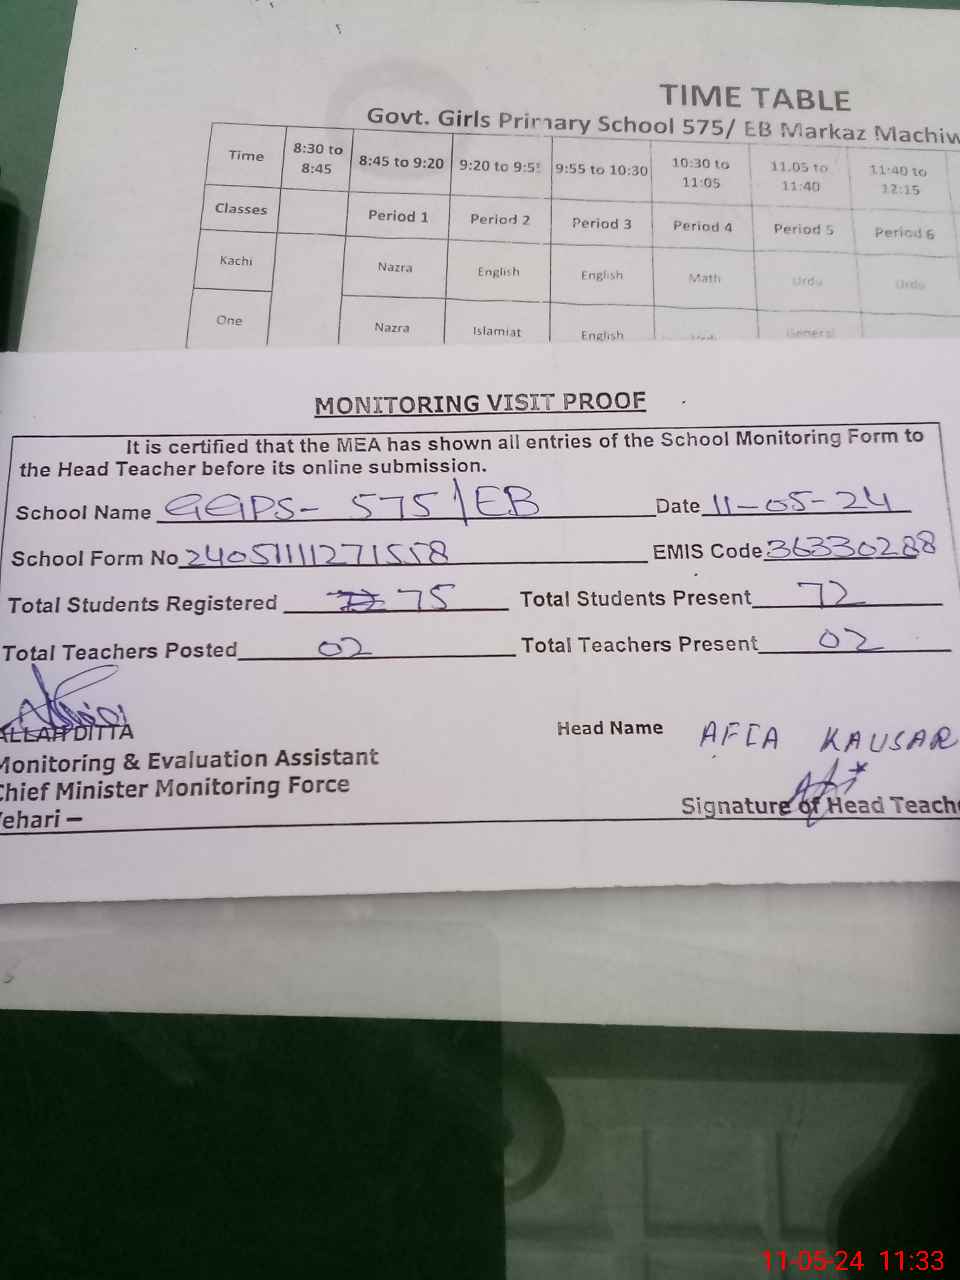 TIME TABLE
Govt. Girls Primary School 575/ EB Markaz Machiw
Time 8:30 to 8:45 8:45 to 9:20 9:20 to 9:55 9:55 to 10:30 10:30 to 11:05 11.05 to 11:40 11:40 to 12:15
Classes Period 1 Period 2 Period 3 Period 4 Period 5 Period 6
Kachi Nazra English English Math Urdu Urdu
One Nazra Islamiat English General
MONITORING VISIT PROOF
It is certified that the MEA has shown all entries of the School Monitoring Form to
the Head Teacher before its online submission.
School Name GGPS- 575/EB Date 11-05-24
School Form No 24051111271558 EMIS Code 36330288
Total Students Registered 75 Total Students Present 72
Total Teachers Posted 02 Total Teachers Present 02
ALLAH DITTA
Head Name AFIA KAUSAR
Monitoring & Evaluation Assistant
Chief Minister Monitoring Force
Signature of Head Teache
Vehari –
11-05-24 11:33